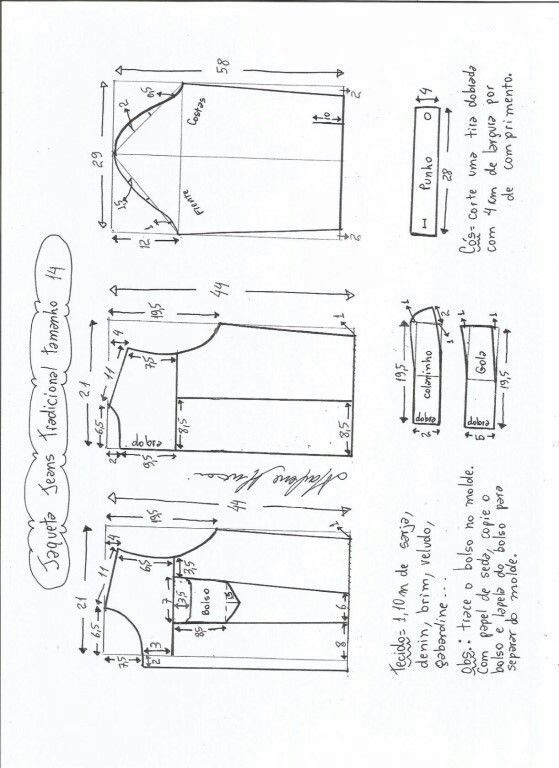 Jaqueta Jeans Tradicional tamanho 14
21
6,5
11
4
19,5
44
7,5
2
3
6,5
3,5
7
3,5
Bolso
8,5
8
6
1
21
6,5
11
4
19,5
44
2
9,5
7,5
dobra
8,5
8,5
1
29
12
58
2
0,5
1
Costas
Frente
10
2
2
Tecido= 1,10 m de sarja,
denin, brim, veludo,
gabardine...
Obs.: trace o bolso no molde.
Com papel de seda, copie o
bolso e lapela do bolso para
separar do molde.
19,5
colarinho
dobra
2
1
2
1
Gola
dobra
5
1
19,5
Punho
4
28
Cós= corte uma tira dobrada
com 4cm de largura por
de comprimento.